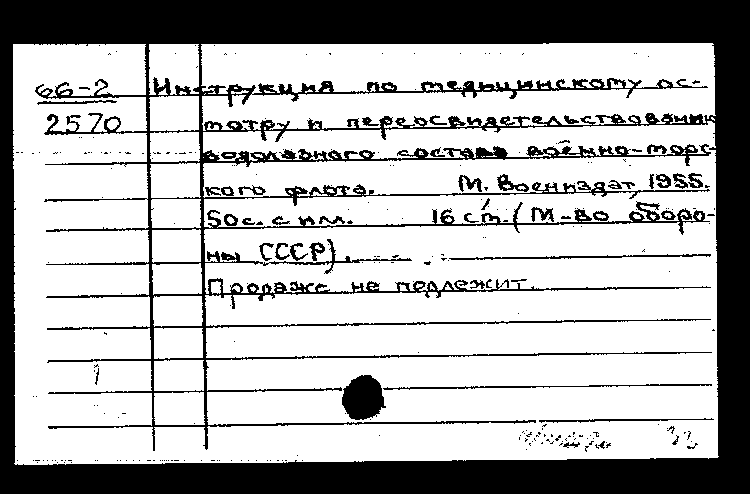 66-2 Инструкция по медыцинскому ос-
2570 мотру и переосвидетельствованию
водолазного состава военно-морс-
кого флота. М. Воениздат, 1955.
50с. с илл. 16 см. (М-во оборо-
ны СССР).
Продаже не подлежит.